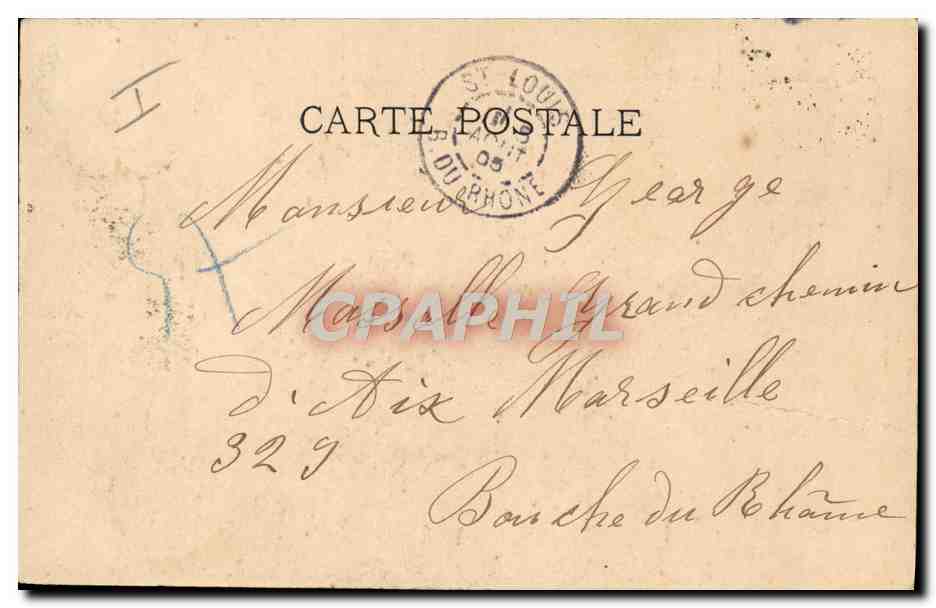 I
CARTE POSTALE
ST LOUIS
AOUT
05
B. DU RHONE
Monsieur George
Grand chemin
CPAPHIL
d'Aix Marseille
329
Bouche du Rhône